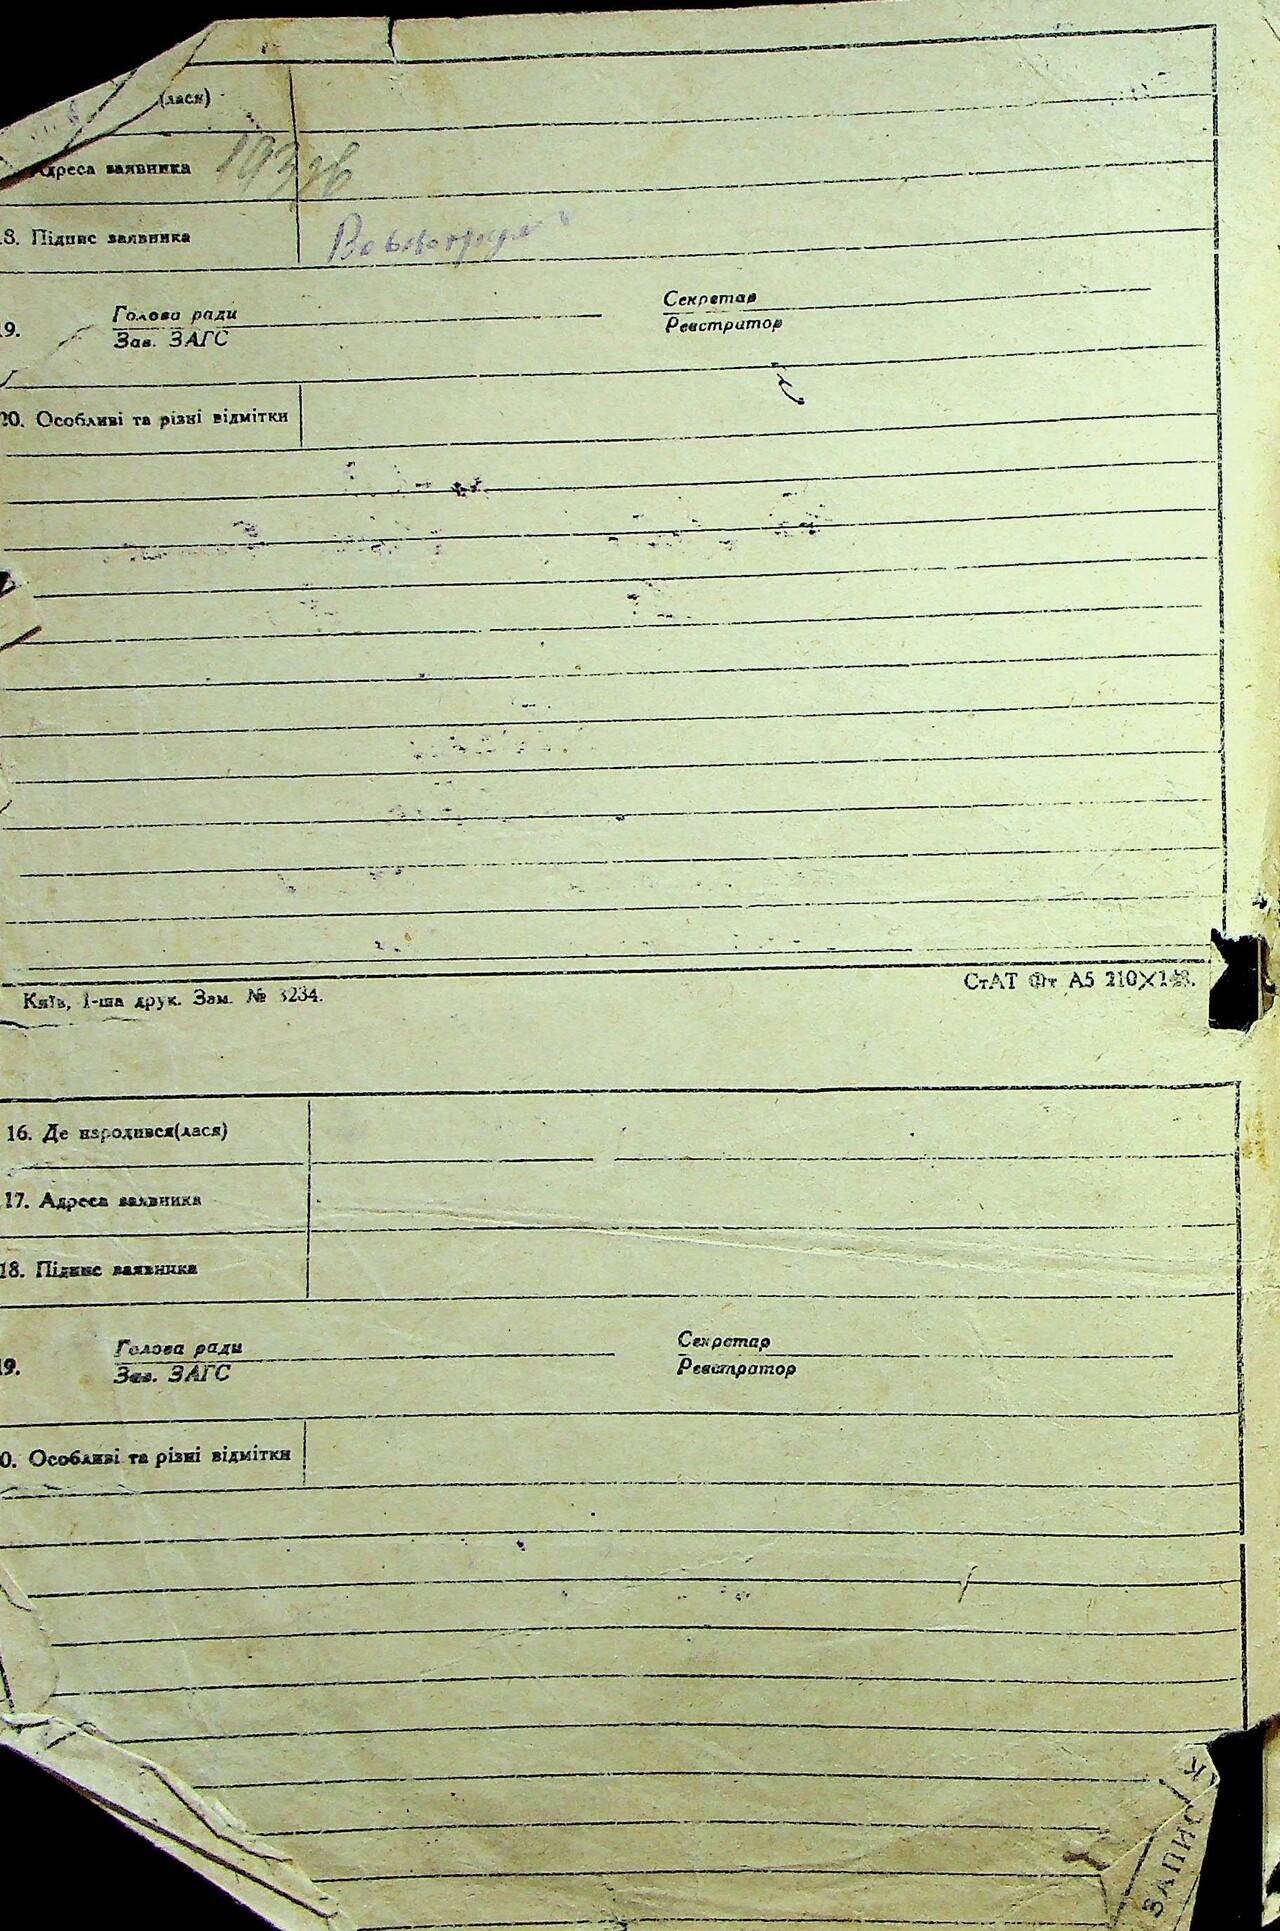 (лася)
Адреса заявника
18. Підпис заявника
19. Голова ради
Зав. ЗАГС
Секретар
Реєстратор
20. Особливі та різні відмітки
Київ, 1-ша друк. Зам. № 3234.
СтАТ Фт А5 210×148.
16. Де народився(лася)
17. Адреса заявника
18. Підпис заявника
19. Голова ради
Зав. ЗАГС
Секретар
Реєстратор
0. Особливі та різні відмітки
ЗАПИС